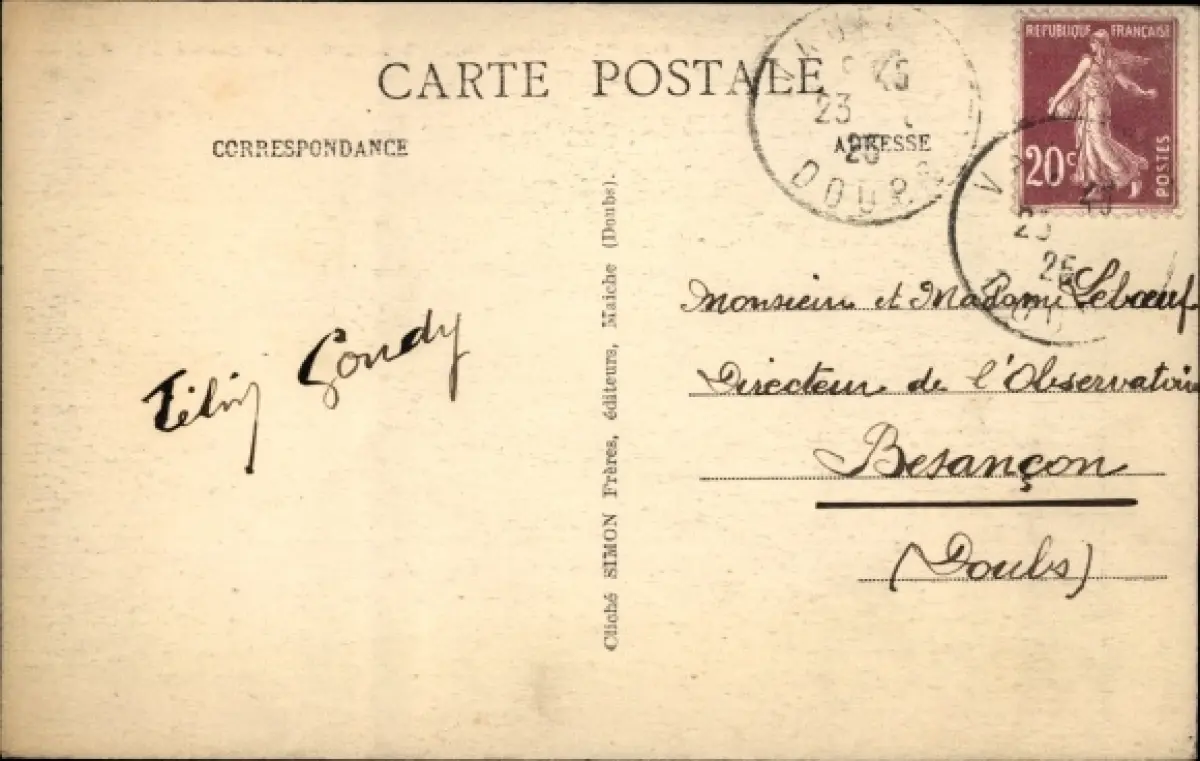 CARTE POSTALE
CORRESPONDANCE
ADRESSE
REPUBLIQUE FRANÇAISE
20c
POSTES
23
DOUBS
23
Monsieur et Madame Lebœuf
Directeur de l'Observatoire
Besançon
(Doubs)
Gondy
Cliché SIMON Frères, éditeurs, Maiche (Doubs).